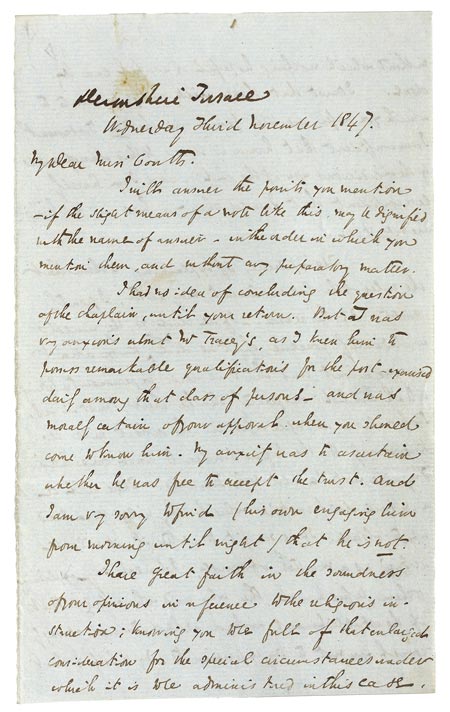 Devonshire Terrace
Wednesday Third November 1847.
My Dear Miss Coutts.
I will answer the points you mention
- if the slight means of a note like this, may be dignified
with the name of answer - in the order in which you
mention them, and without any preparatory matter.
I had no idea of concluding the question
of the chaplain, until your return. But I was
very anxious about Mr Tracey's, as I knew him to
possess remarkable qualifications for the post - exercised
daily among that class of persons - and was
morally certain of your approval when you should
come to know him. My anxiety was to ascertain
whether he was free to accept the trust. And
I am very sorry to find (his own engaging him
from morning until night) that he is not.
I have great faith in the soundness
of your opinions in reference to the religious in-
struction; knowing you to be full of that enlarged
consideration for the special circumstances under
which it is to be administered in this case.